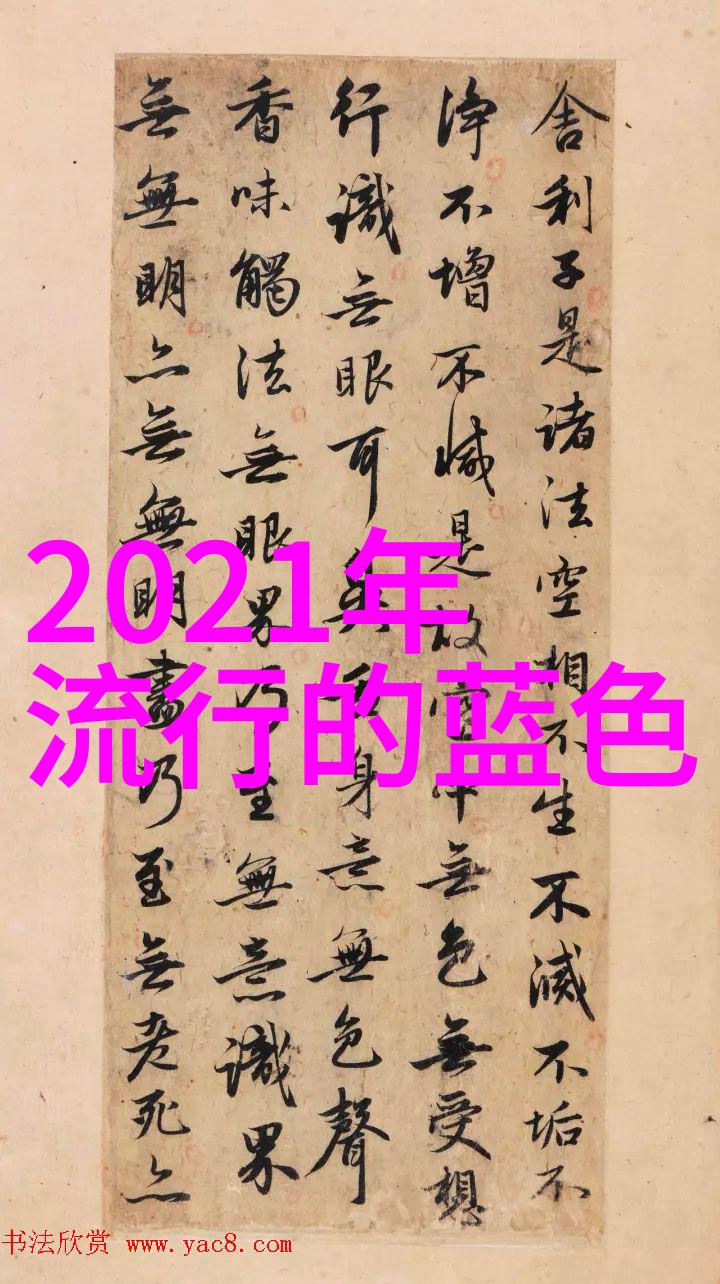 舍利子是諸法空相不生不滅不垢不
淨不增不減是故空中無色無受想
行識無眼耳鼻舌身意無色聲
香味觸法無眼界乃至無意識界
無無明亦無無明盡乃至無老死亦
2021年
流行的蓝色
书法欣赏 www.yac8.com